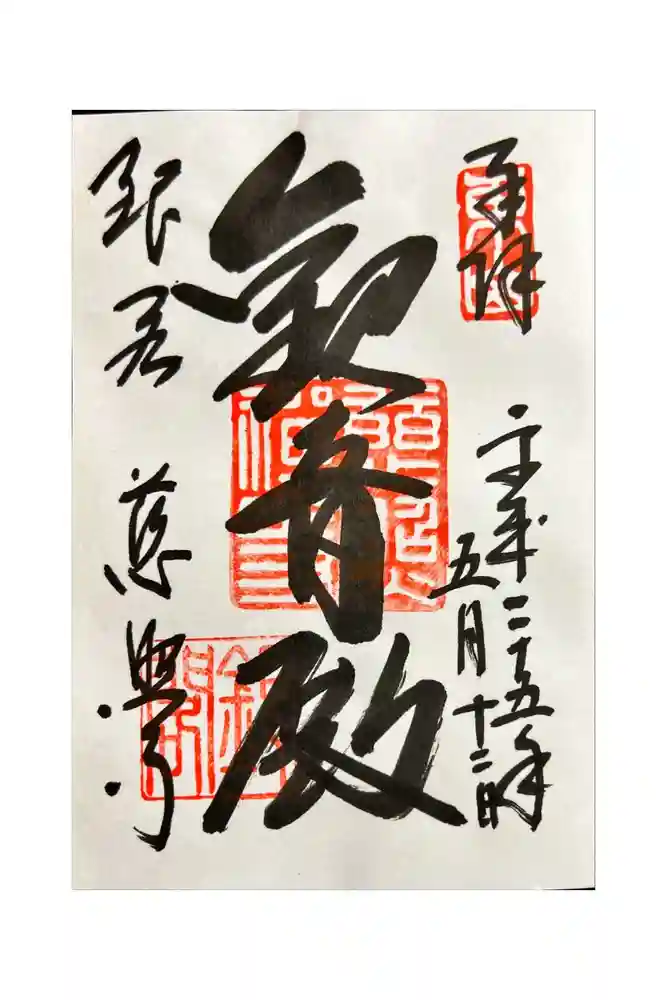 奉拝
平成二十五年
五月十二日
観音殿
銀閣
慈照寺
銀閣